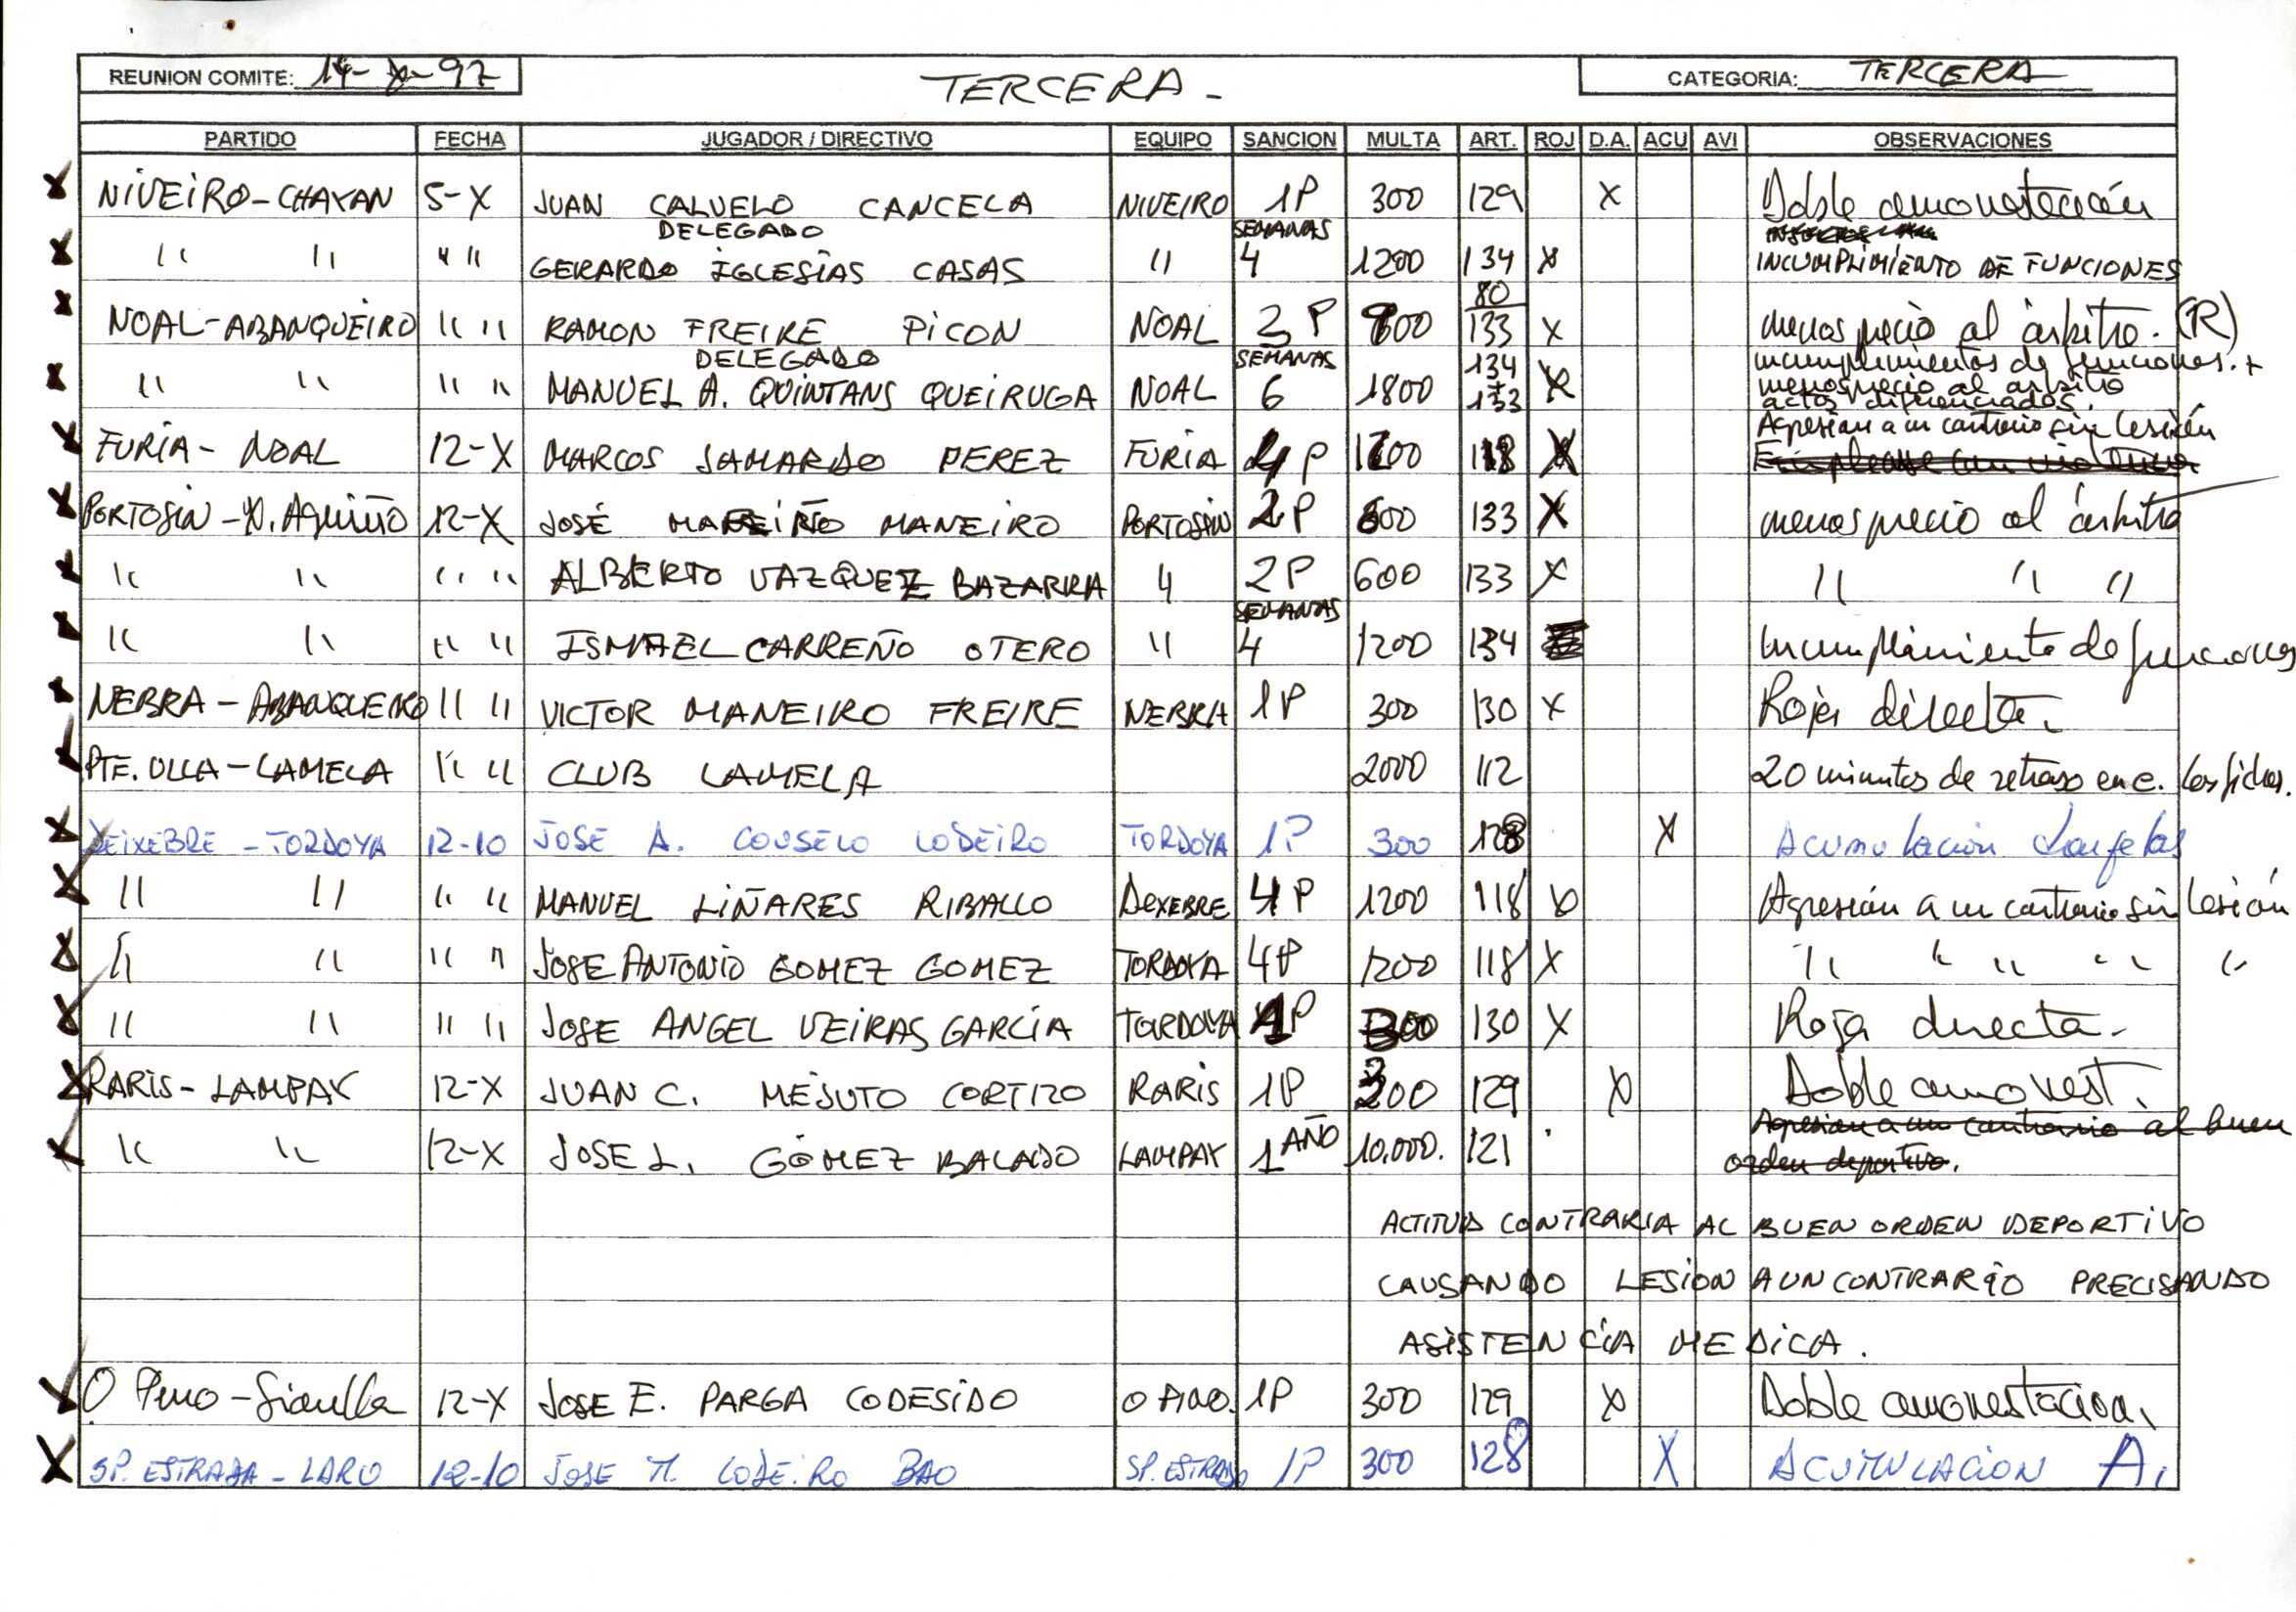 REUNION COMITE: 14-X-97
TERCERA -
CATEGORIA: TERCERA
PARTIDO FECHA JUGADOR / DIRECTIVO EQUIPO SANCION MULTA ART. ROJ D.A. ACU AVI OBSERVACIONES
X NIVEIRO-CHAYAN 5-X JUAN CALVELO CANCELA NIVEIRO 1P 300 129 X Doble amonestación
DELEGADO SEMANAS
X " " " " GERARDO IGLESIAS CASAS " 4 1200 134 X INCUMPLIMIENTO DE FUNCIONES
80
X NOAL-ABANQUEIRO " " RAMON FREIRE PICON NOAL 3 P 133 X menosprecio al árbitro. (R)
DELEGADO SEMANAS 134 incumplimientos de funciones. +
X " " " " MANUEL A. QUINTANS QUEIRUGA NOAL 6 1800 + 133 X menosprecio al arbitro
actos diferenciados.
Agresión a un contrario sin lesión
X FURIA - NOAL 12-X MARCOS JAMARDO PEREZ FURIA 4 P 1200 118 X
X PORTOSIN - D. Aguiño 12-X JOSÉ MAREIÑO MANEIRO PORTOSIN 2P 600 133 X menosprecio al árbitro
X " " " " ALBERTO VAZQUEZ BAZARRA " 2P 600 133 X " " "
SEMANAS
X " " " " ISMAEL CARREÑO OTERO " 4 1200 134 Incumplimiento de funciones
X NEBRA - ABANQUEIRO " " VICTOR MANEIRO FREIRE NEBRA 1P 300 130 X Roja directa.
X PTE. ULLA - LAMELA " " CLUB LAMELA 2000 112 20 minutos de retraso en e. las fichas.
X DEIXEBRE - TORDOYA 12-10 JOSE A. COUSELO LODEIRO TORDOYA 1P 300 128 X Acumulación tarjetas
X " " " " MANUEL LIÑARES RIBALLO DEXEBRE 4P 1200 118 X Agresión a un contrario sin lesión
X " " " " JOSE ANTONIO GOMEZ GOMEZ TORDOYA 4P 1200 118 X " " " " "
X " " " " JOSE ANGEL VEIRAS GARCÍA TORDOYA 1P 300 130 X Roja directa-
X RARIS - LAMPAY 12-X JUAN C. MEJUTO CORTIZO RARIS 1P 300 129 X Doble amonest.
Agresion a un contrario al buen
X " " 12-X JOSE L. GÓMEZ BALADO LAMPAY 1 AÑO 10.000. 121 orden deportivo.
ACTITUD CONTRARIA AL BUEN ORDEN DEPORTIVO
CAUSANDO LESION A UN CONTRARIO PRECISANDO
ASISTENCIA MEDICA.
X O Pino - Sionlla 12-X JOSE E. PARGA CODESIDO O PINO. 1P 300 129 X Doble amonestacion.
X SP. ESTRADA - LARO 12-10 JOSE M. LODEIRO BAO SP. ESTRADA 1P 300 128 X ACUMULACION A.